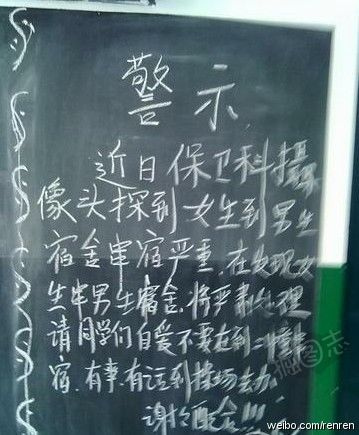 警示
近日保卫科摄
像头探到女生到男生
宿舍串宿严重.在发现女
生串男生宿舍.将严肃处理
请同学们自爱不要在到二楼串
宿.有事.有话到操场去办.
谢谢配合!!!
猫图志
weibo.com/renren